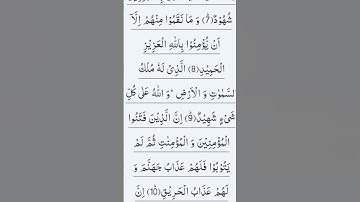 شُهُوۡدٌؕ(7) وَ مَا نَقَمُوۡا مِنۡهُمۡ اِلَّاۤ
اَنۡ يُّؤۡمِنُوۡا بِاللّٰهِ الۡعَزِيۡزِ
الۡحَمِيۡدِۙ(8) الَّذِىۡ لَهٗ مُلۡكُ
السَّمٰوٰتِ وَ الۡاَرۡضِ‌ؕ وَ اللّٰهُ عَلٰى كُلِّ
شَىۡءٍ شَهِيۡدٌؕ(9) اِنَّ الَّذِيۡنَ فَتَنُوا
الۡمُؤۡمِنِيۡنَ وَ الۡمُؤۡمِنٰتِ ثُمَّ لَمۡ
يَتُوۡبُوۡا فَلَهُمۡ عَذَابُ جَهَنَّمَ وَ
لَهُمۡ عَذَابُ الۡحَرِيۡقِؕ(10) اِنَّ